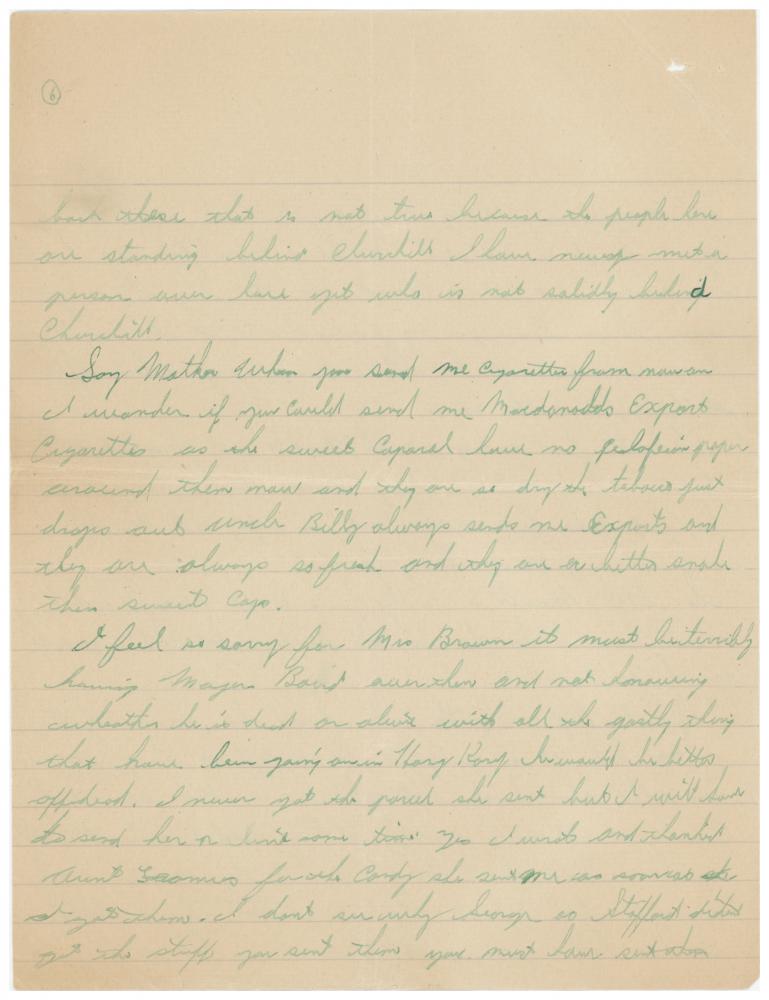 6
back these that is not true because the people here
are standing behind Churchill I have never met a
person over here yet who is not solidly behind
Churchill.
Say Mother when you send me cigarettes from now on
I wonder if you could send me Macdonalds Export
Cigarettes as the sweet Caporal have no paper
around them now and they are so dry the tobacco just
drops out uncle Billy always sends me Exports and
they are always so fresh and they are a better smoke
then sweet Caps.
I feel so sorry for Mrs Brown it must be terribly
having Major Baird over then and not knowing
wheather he is dead or alive with all the gastly thing
that have been going on in Hong Kong he would be better
off dead. I never got the parcel she sent but I will have
to send her a line some time Yes I wrote and thanked
Aunt for the Candy she sent me as soon as
I got them. I dont see why George or Stafford didnt
get the stuff you sent them you must have sent